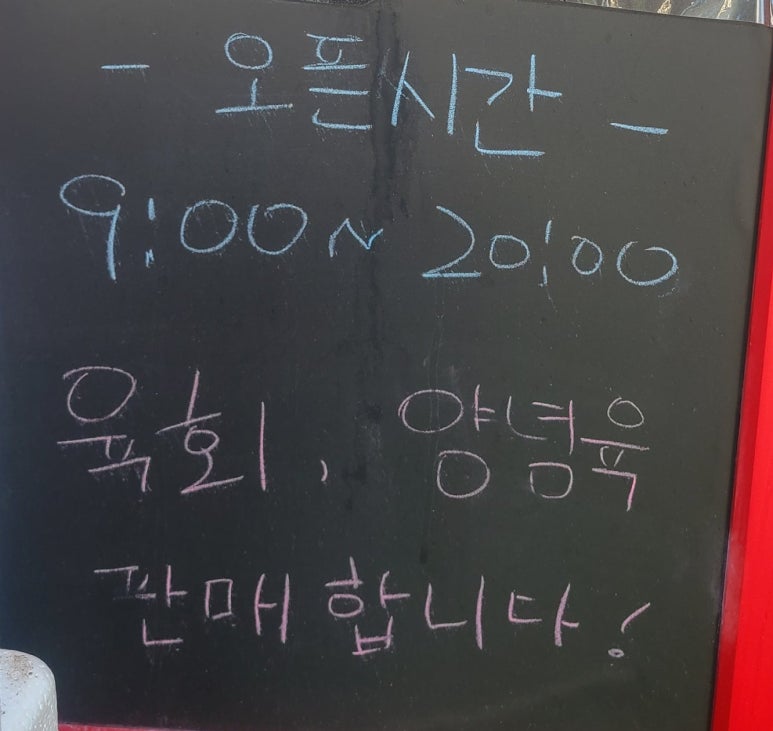 - 오픈시간 -
9:00 ~ 20:00
육회, 양념육
판매합니다!